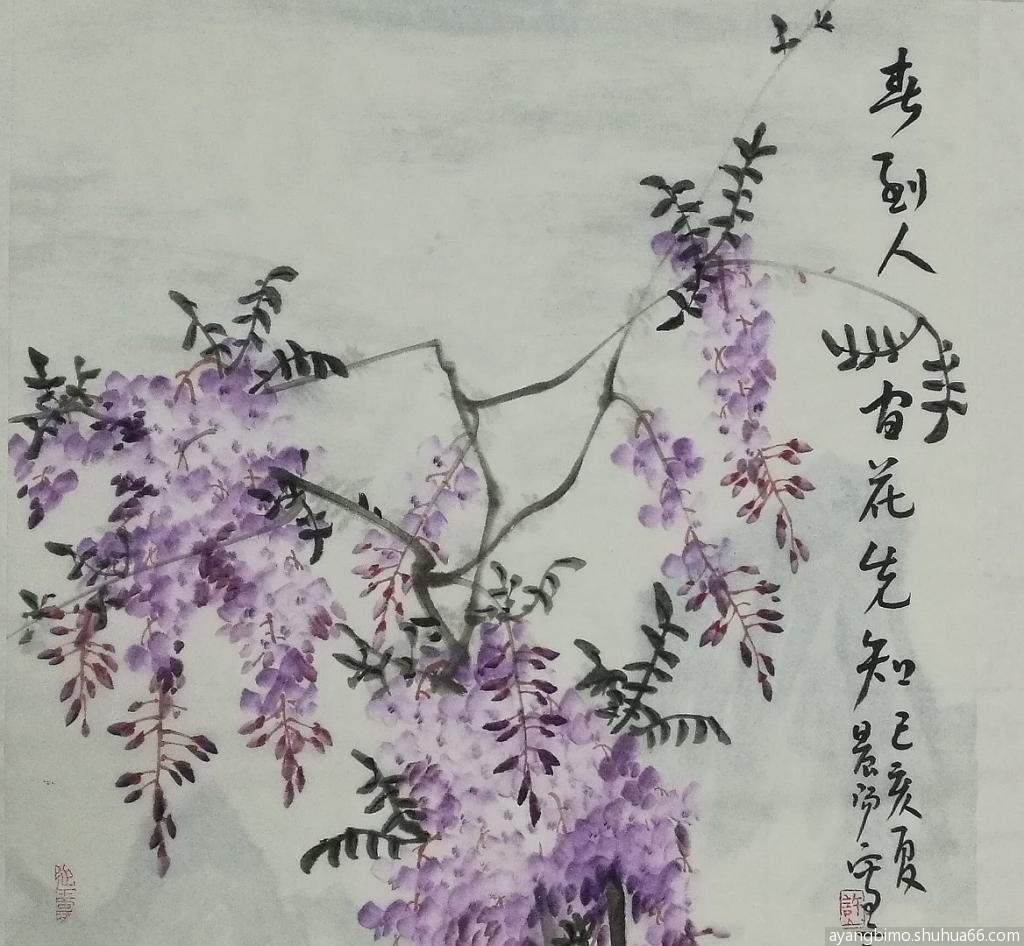 春到人间花先知
己亥夏
晨阳写
許
ayangbimo.shuhua66.com